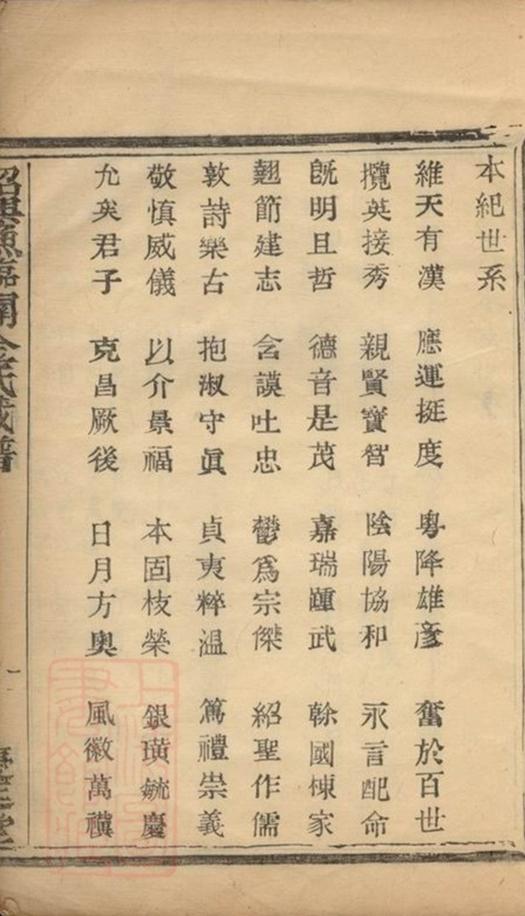 本紀世系
維天有漢 應運挺度 粵降雄彥 奮於百世
攬英接秀 親賢寶智 陰陽協和 永言配命
旣明且哲 德音是茂 嘉瑞踵武 榦國棟家
翹節建志 含謨吐忠 鬱爲宗傑 紹聖作儒
敦詩樂古 抱淑守眞 貞夷粹温 篤禮崇義
敬慎威儀 以介景福 本固枝榮 銀璜毓慶
允矣君子 克昌厥後 日月方奧 風徽萬禩
氏
譜
一